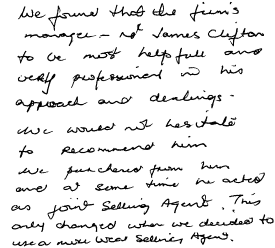 We found that the firm's
manager - Mr James Clifton
to be most helpfull and
very professional in his
approach and dealings.
We would not hesitate
to recommend him
We purchased from him
and at same time he acted
as joint Selling Agent. This
only changed when we decided to
use a more local Selling Agent.